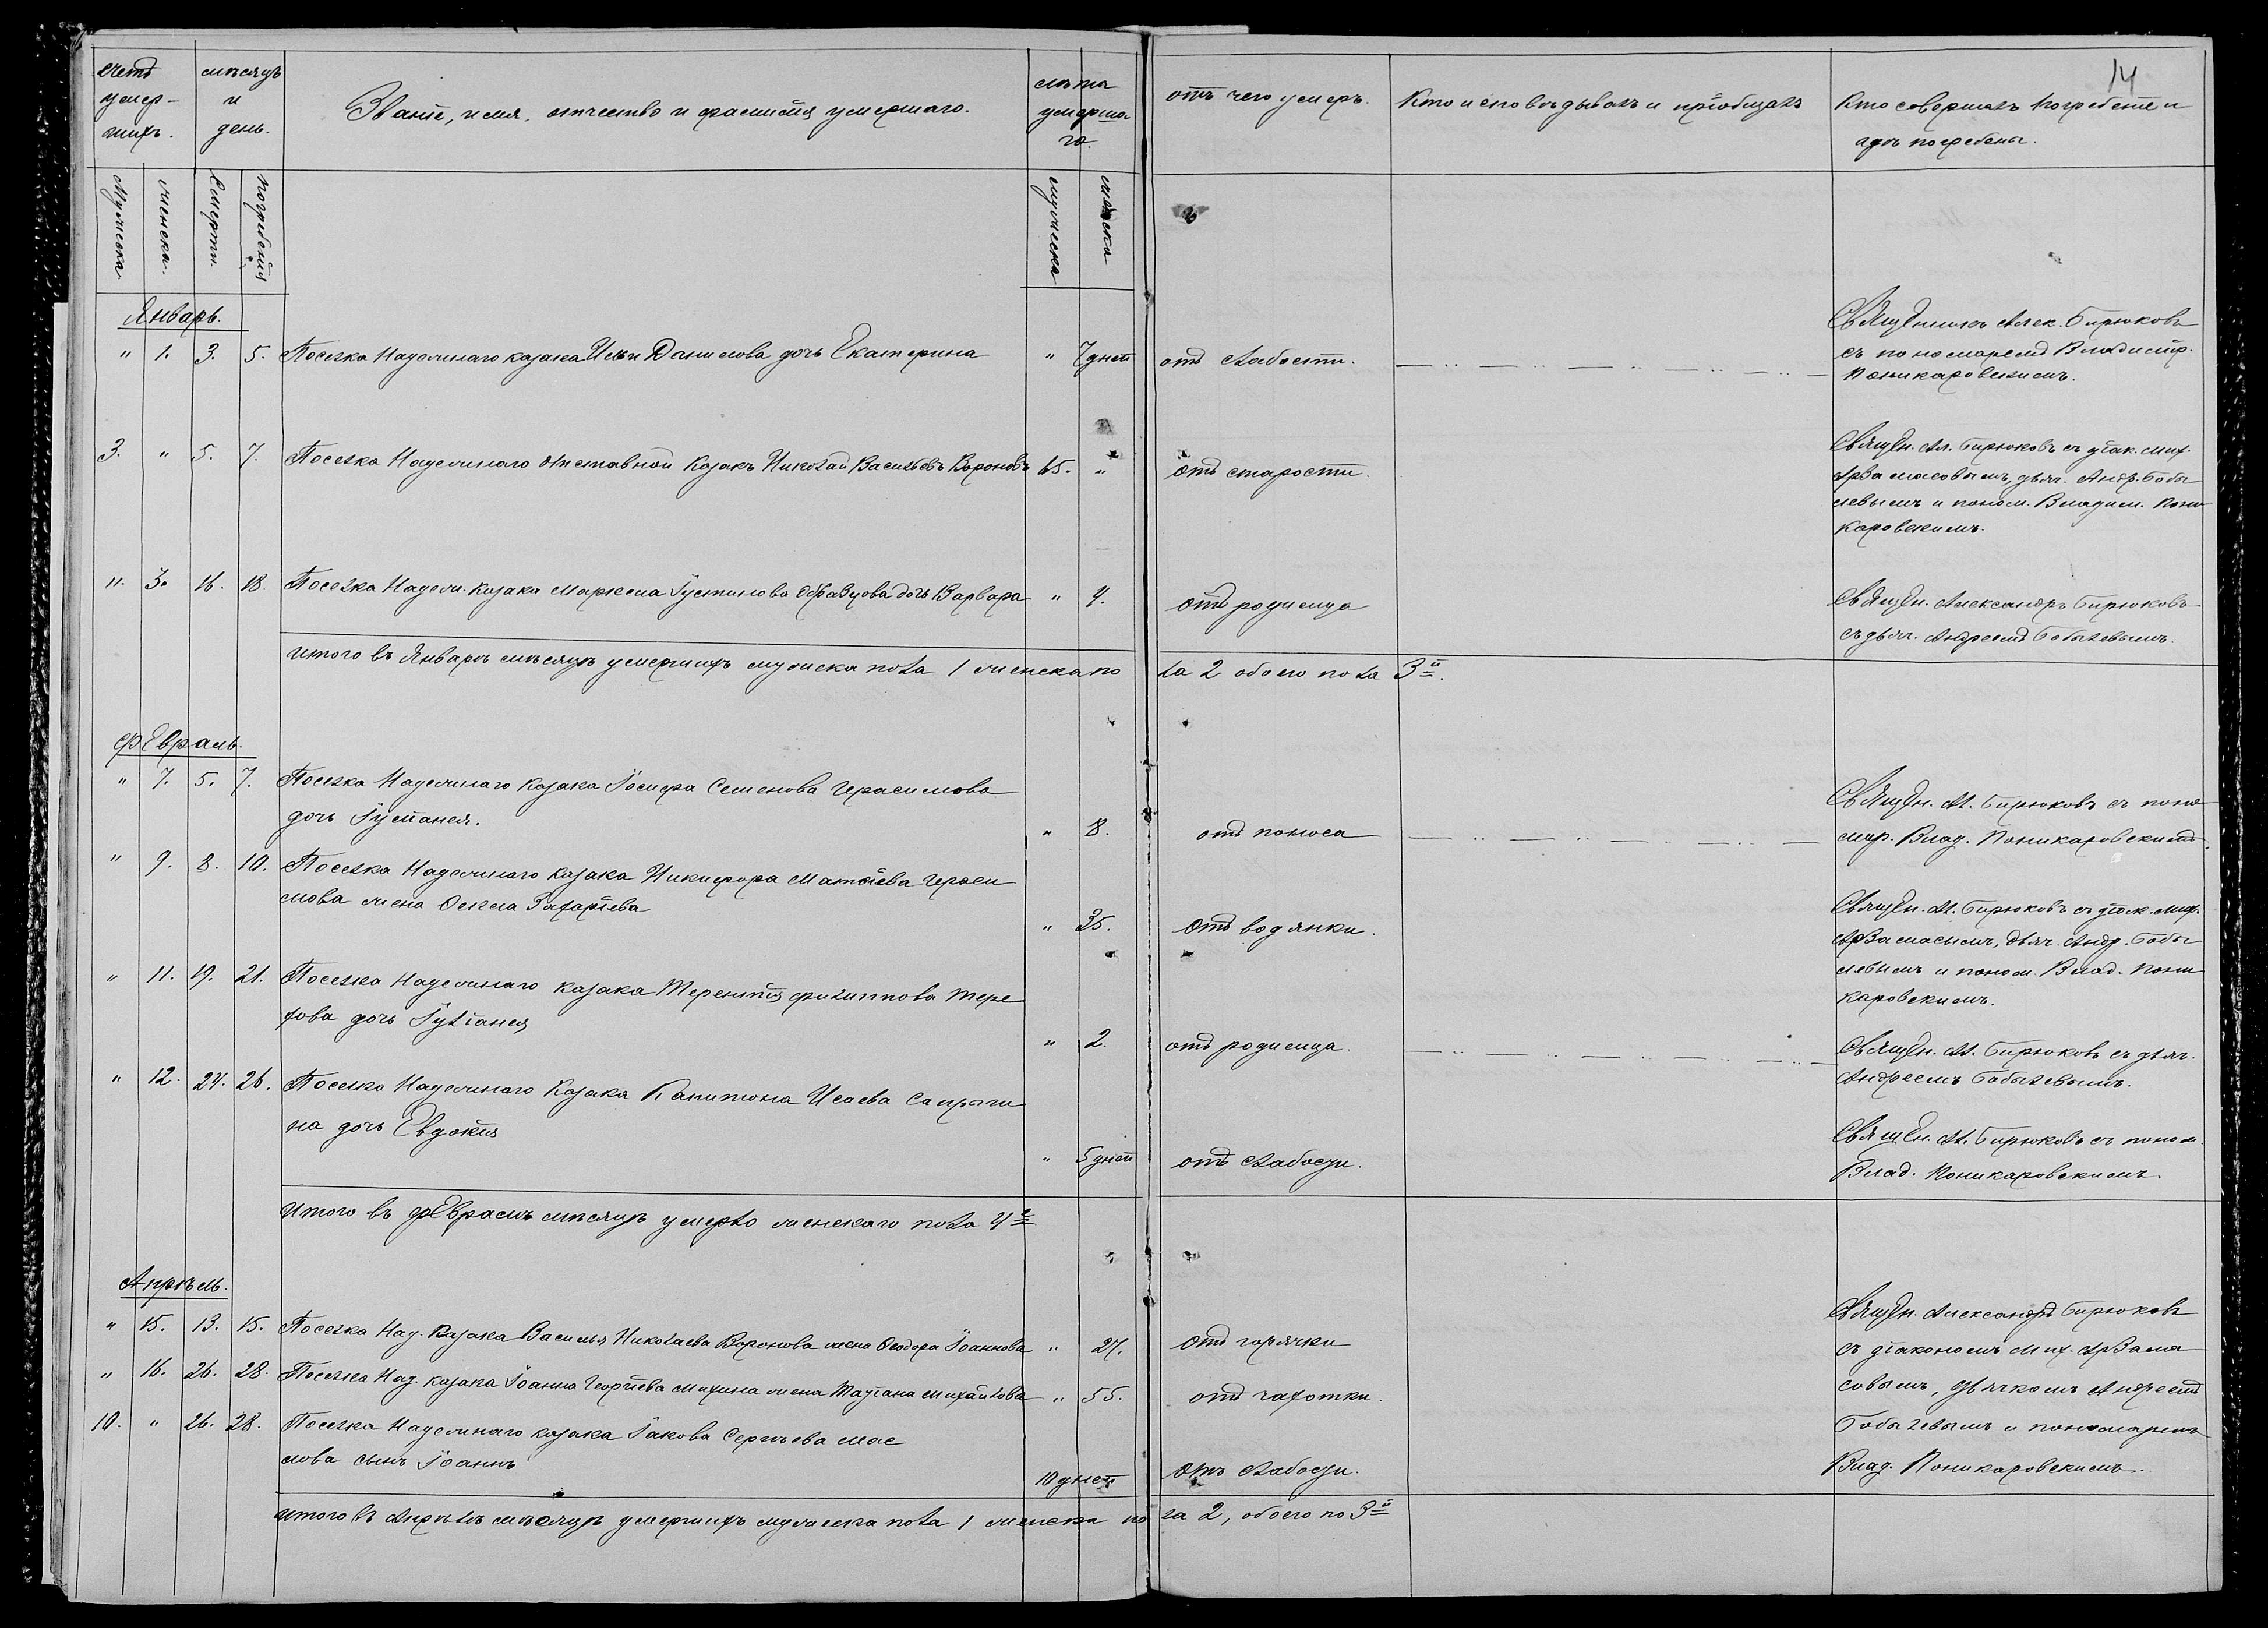 14
счетъ умер-шихъ.
мѣсяцъ и день.
Званіе, имя, отчество и фамилія умершаго.
лѣта умерша-го.
отъ чего умеръ.
Кто исповѣдывалъ и пріобщалъ
Кто совершалъ погребеніе и
гдѣ погребены.
Мужеска.
женска.
Смерти.
погребенія
мужеска
женска
Январь.
" 1. 3. 5. Поселка Надежинаго казака Ильи Данилова дочь Екатерина " 7 дней отъ слабости.
Священникъ Алек. Бирюковъ
съ пономаремъ Владимір.
Поникаровскимъ.
3. " 5. 7. Поселка Надежинаго отставной казакъ Николай Васильевъ Вороновъ 65. " отъ старости.
Священ. Ал. Бирюковъ съ діак. Мих.
Арзамасовымъ, дьяч. Андр. Бобы
левымъ и поном. Владим. Пони
каровскимъ.
" 3. 16. 18. Поселка Надеж. казака Маркела Іустинова Образцова дочь Варвара " 4. отъ родимца
Священ. Александръ Бирюковъ
съ дьяч. Андреемъ Бобылевымъ.
Итого въ Январѣ мѣсяцѣ умершихъ мужеска пола 1 женска по ла 2 обоего пола 3й.
Февраль.
" 7. 5. 7. Поселка Надежинаго казака Іосифа Семенова Герасимова
дочь Іустанея. " 8. отъ поноса
Священ. Ал. Бирюковъ съ поно
мар. Влад. Поникаровскимъ.
" 9. 8. 10. Поселка Надежинаго казака Никифора Матвіева Гераси
мова жена Фекла Захаріева " 35. отъ водянки.
Священ. Ал. Бирюковъ съ діак. Мих.
Арзамасымъ, дьяч. Андр. Бобы
левымъ и поном. Влад. Пони
каровскимъ.
" 11. 19. 21. Поселка Надежинаго казака Терентія Филиппова Тере
хова дочь Іуліанея " 2. отъ родимца.
Священ. Ал. Бирюковъ съ дьяч.
Андреемъ Бобылевымъ.
" 12. 24. 26. Поселка Надежинаго казака Капитона Исаева Сапрыги
на дочь Евдокія " 5 дней отъ слабости.
Священ. Ал. Бирюковъ съ поном.
Влад. Поникаровскимъ.
Итого въ Февралѣ мѣсяцѣ умерло женскаго пола 4е
Апрѣль.
" 15. 13. 15. Поселка Над. казака Василья Николаева Воронова жена Феодора Іоаннова " 27. отъ горячки
" 16. 26. 28. Поселка Над. казака Іоанна Георгіева Михина жена Татіана Михайлова " 55. отъ чахотки.
10. " 26. 28. Поселка Надежинаго казака Іакова Сергѣева Мас
лова сынъ Іоаннъ 10 дней отъ слабости.
Священ. Александръ Бирюковъ
съ діакономъ Мих. Арзама
совымъ, дьячкомъ Андреемъ
Бобылевымъ и пономаремъ
Влад. Поникаровскимъ.
Итого въ Апрѣлѣ мѣсяцѣ умершихъ мужеска пола 1 женска по ла 2, обоего по 3й